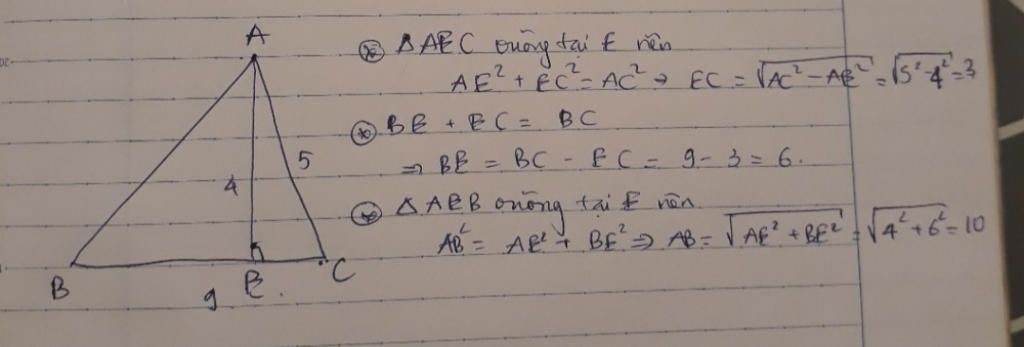 A
4
5
B
9
E
C
* ΔAEC vuông tại E nên
AE² + EC² = AC² → EC = √(AC² - AE²) = √(5² - 4²) = 3
* BE + EC = BC
⇒ BE = BC - EC = 9 - 3 = 6.
* ΔAEB vuông tại E nên
AB² = AE² + BE² ⇒ AB = √(AE² + BE²) = √(4² + 6²) = 10